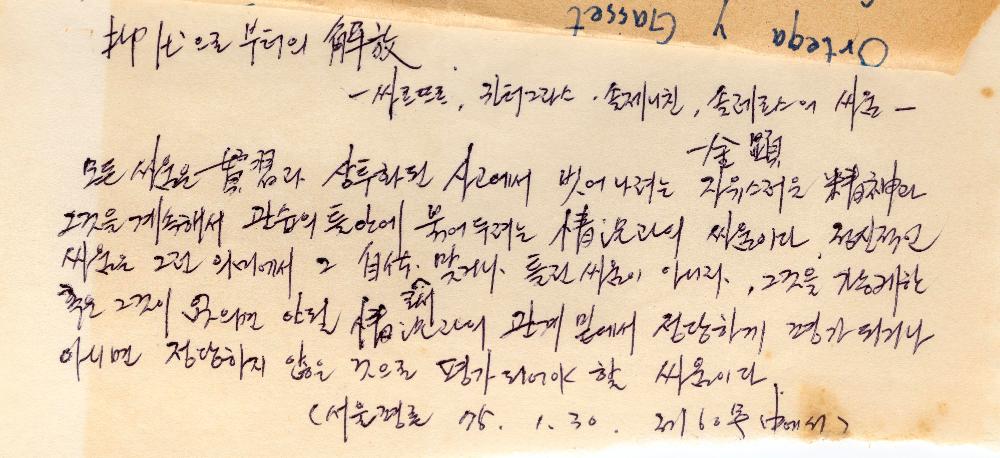 Ortega y Gasset
으로부터의 解放
— 싸르뜨르, 귄터그라스 · 솔제니친, 솔레르스의 싸움 —
金顯
모든 싸움은 慣習과 상투화된 사고에서 벗어나려는 자유스러운 精神과
그것을 계속해서 관습의 틀안에 묶어두려는 情況과의 싸움이다. 정신적인
싸움은 그런 의미에서 그 自体 맞거나, 틀린 싸움이 아니라, 그것을 가능케한
혹은 그것이 없으면 안될 情況과의 관계 밑에서 정당하게 평가되거나
아니면 정당하지 않은 것으로 평가되어야 할 싸움이다.
(서울평론 75. 1. 30. 제60号 中에서)